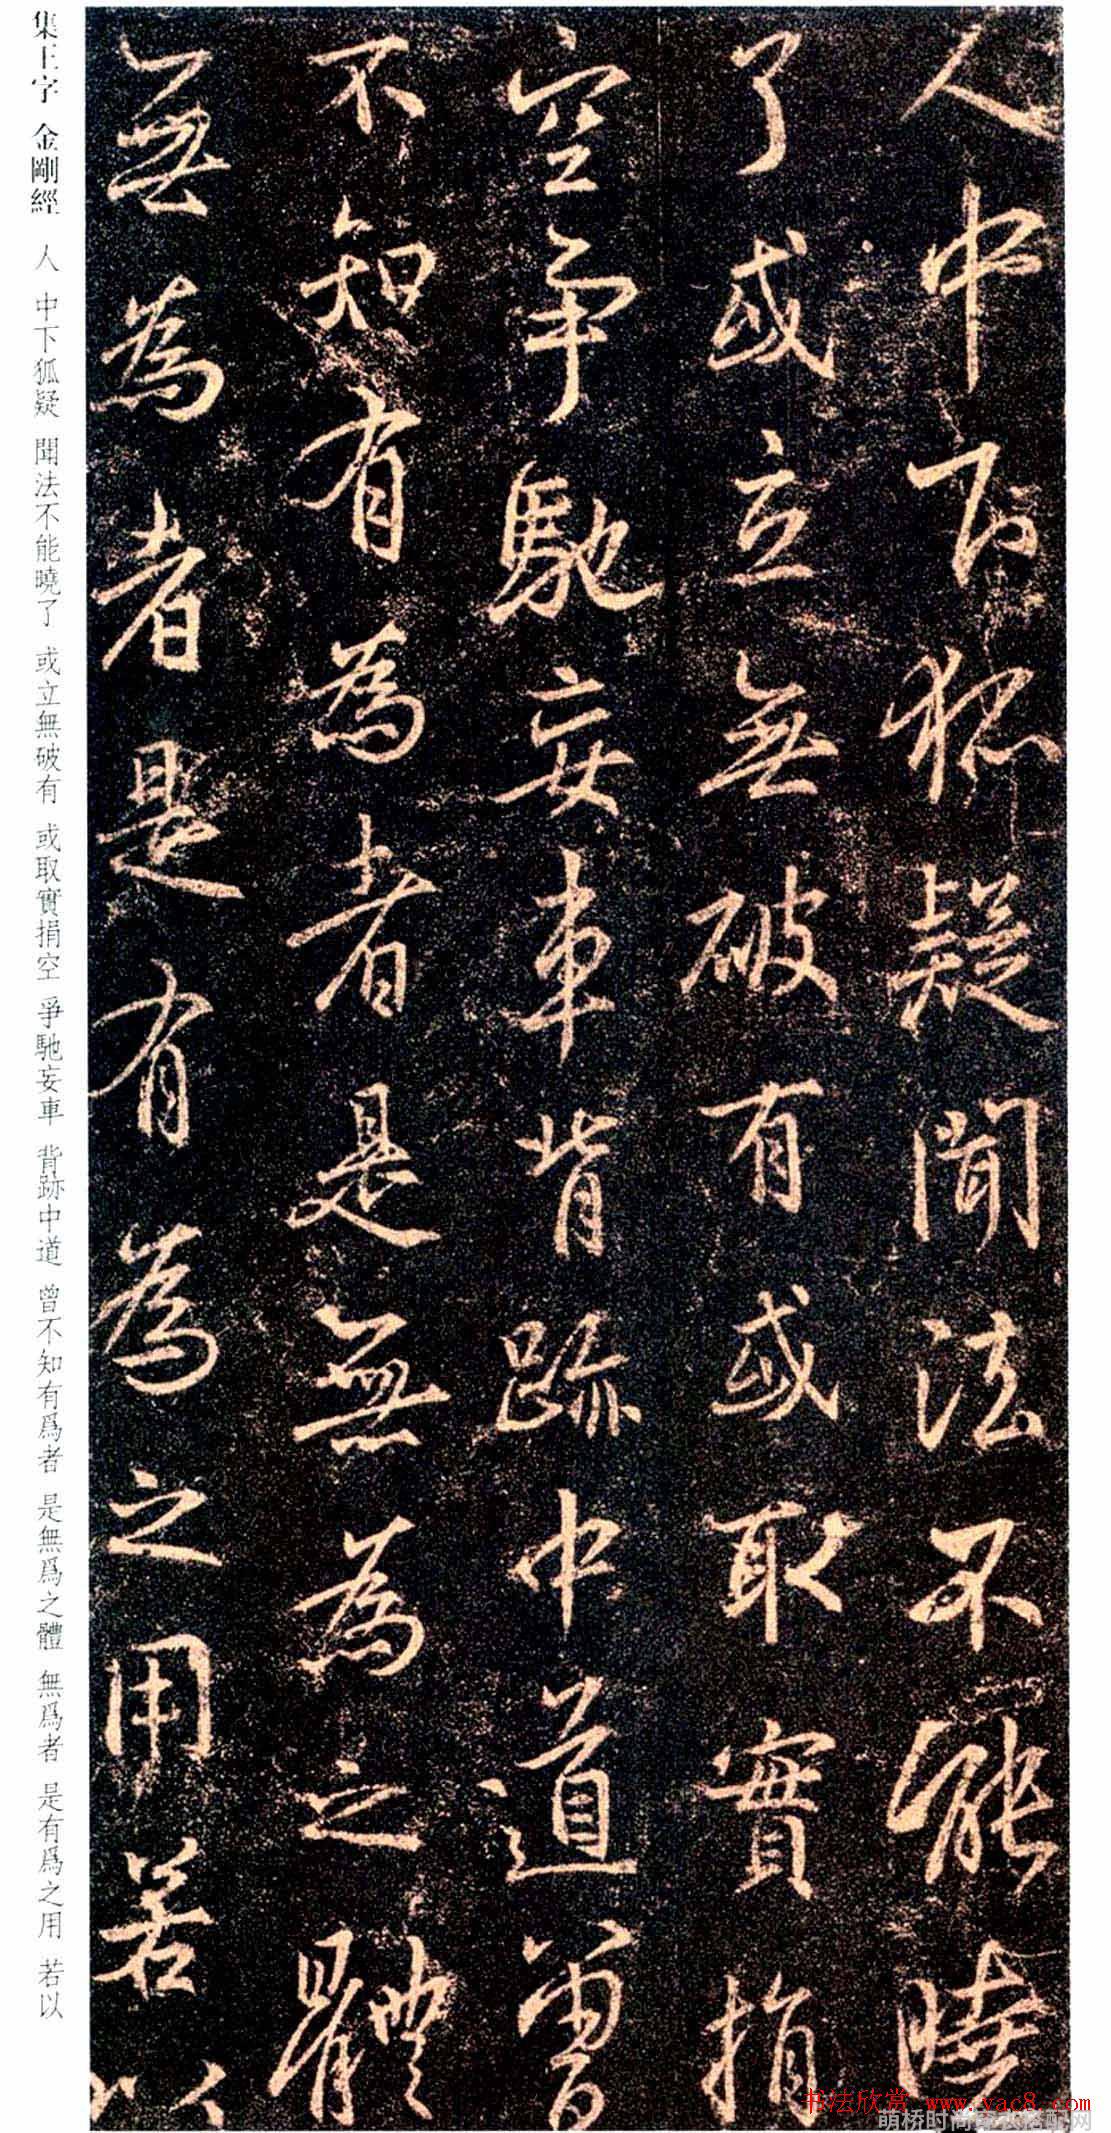 人中下狐疑聞法不能曉
了或立無破有或取實捐
空争馳妄車背跡中道曾
不知有為者是無為之體
無為者是有為之用若以
集王字 金剛經 人 中下狐疑 聞法不能曉了 或立無破有 或取實捐空 爭馳妄車 背跡中道 曾不知有爲者 是無爲之體 無爲者 是有爲之用 若以
书法欣赏 www.yac8.com
萌桥时尚搭配网